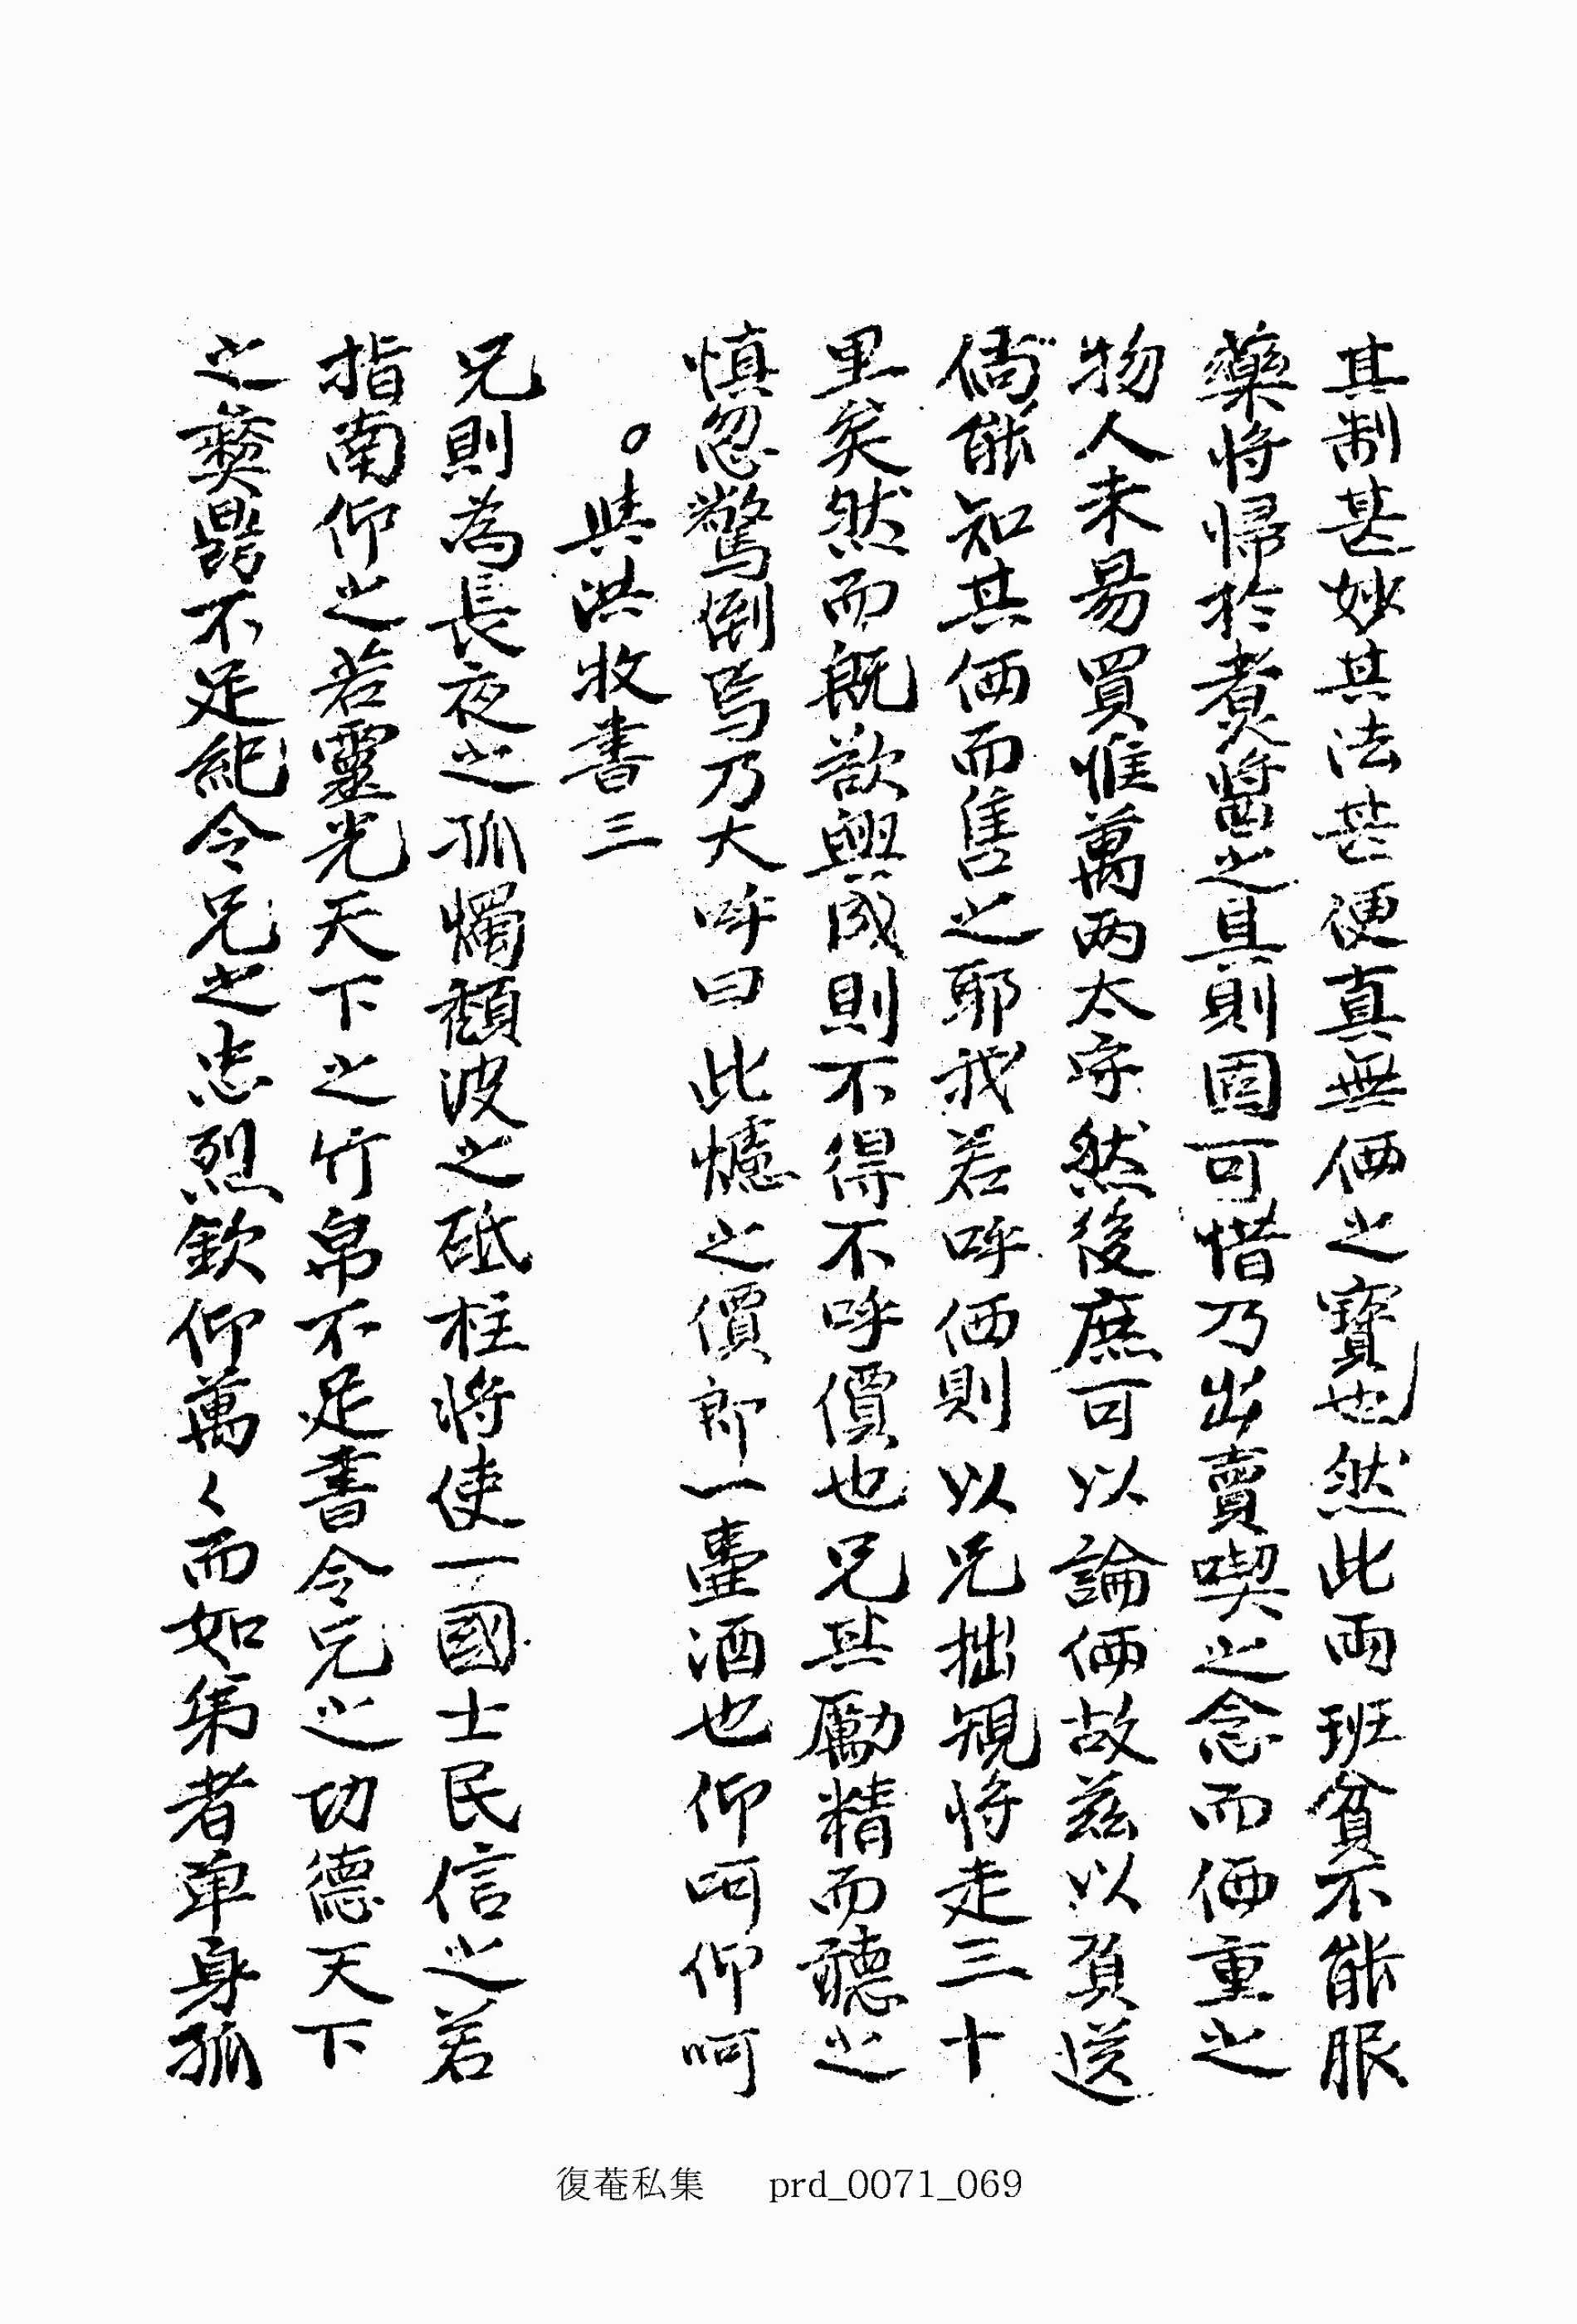 其制甚妙其法甚便真無価之寶也然此両班貧不能服
藥将帰於煮醬之具則固可惜乃出賣喫之念而価重之
物人未易買惟萬両太守然後庶可以論価故茲以負送
儞能知其価而售之耶我若呼価則以兄拙規将走三十
里矣然而既欲興成則不得不呼價也兄其勵精而聽之
慎忽驚倒焉乃大呼曰此爐之價郎一壷酒也仰呵仰呵
。與洪牧書三
兄則為長夜之孤燭頹波之砥柱将使一國士民信之若
指南仰之若靈光天下之竹帛不足書令兄之功德天下
之彛鼎不足紀令兄之忠烈欽仰萬〻而如弟者单身孤
復菴私集 prd_0071_069